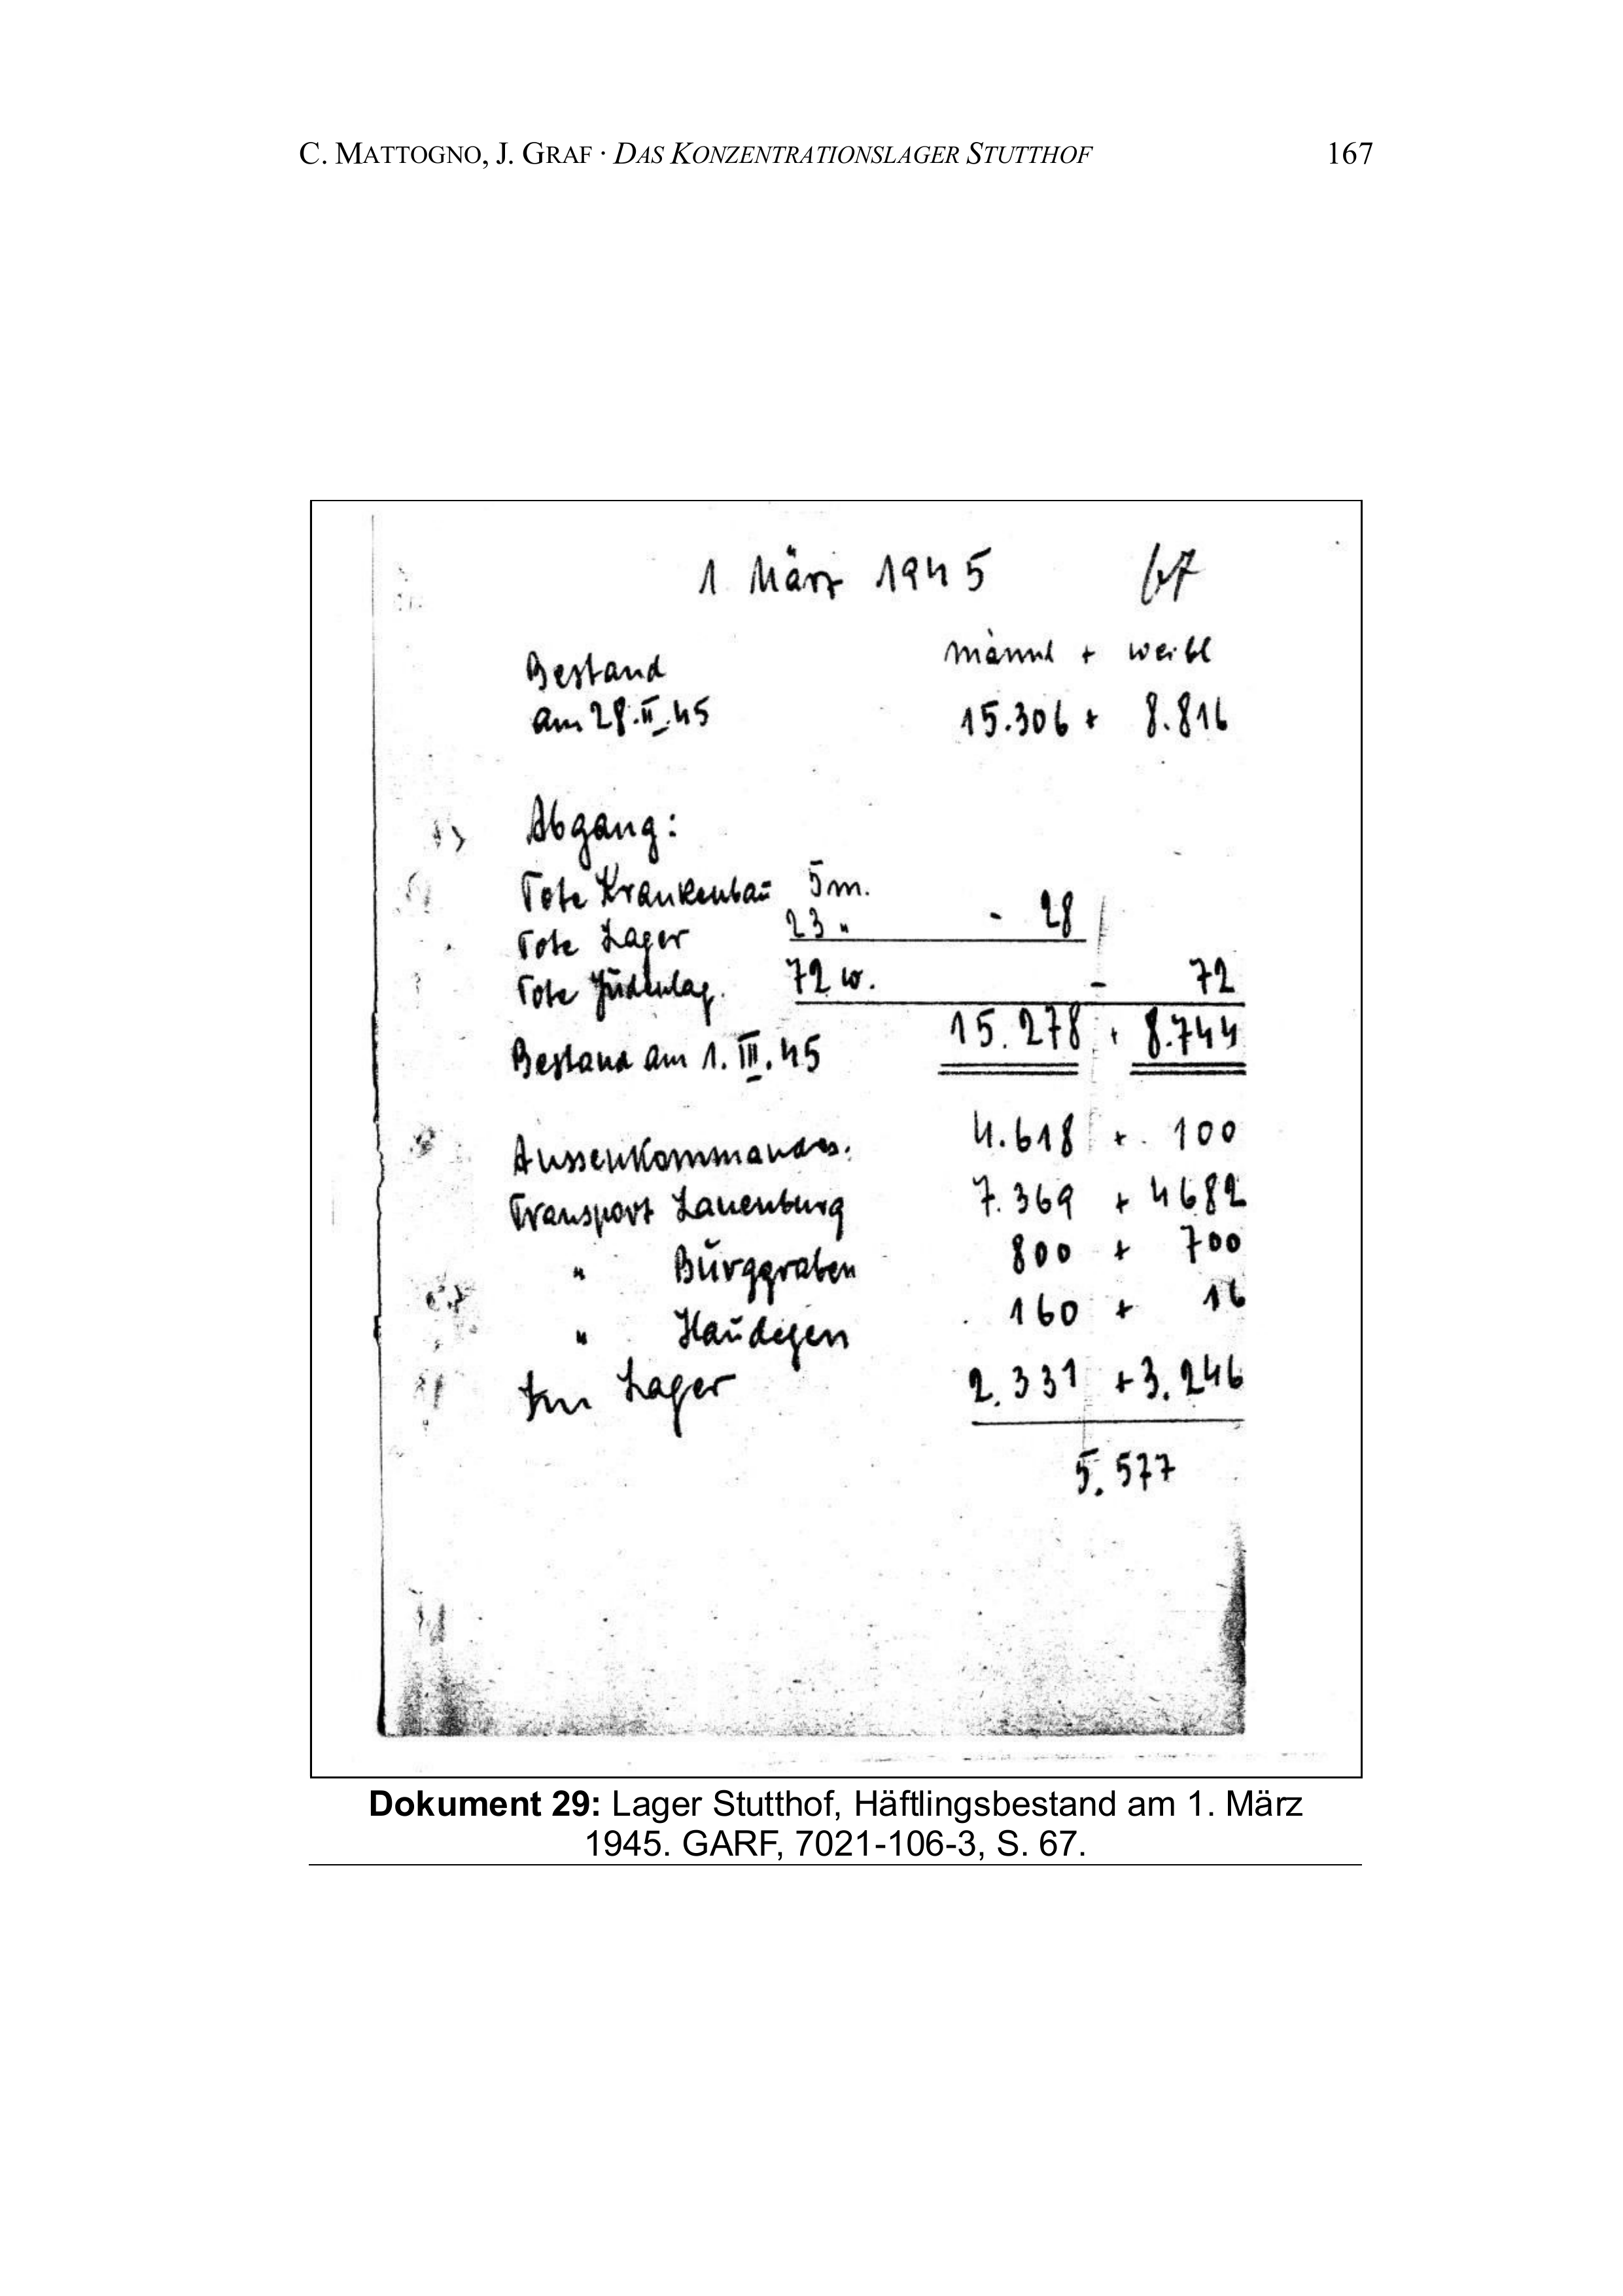 C. MATTOGNO, J. GRAF · DAS KONZENTRATIONSLAGER STUTTHOF 167
1 März 1945 67
männl + weibl
Bestand
am 28.II.45 15.306 + 8.816
Abgang:
Tote Krankenbau 5 m.
Tote Lager 23 " - 28
Tote Judenlag. 72 w. - 72
Bestand am 1.III.45 15.278 + 8.744
Aussenkommandos: 4.618 + 100
Transport Lauenburg 7.369 + 4682
" Burggraben 800 + 700
" Haudegen 160 + 16
Im Lager 2.331 + 3.246
5.577
Dokument 29: Lager Stutthof, Häftlingsbestand am 1. März
1945. GARF, 7021-106-3, S. 67.